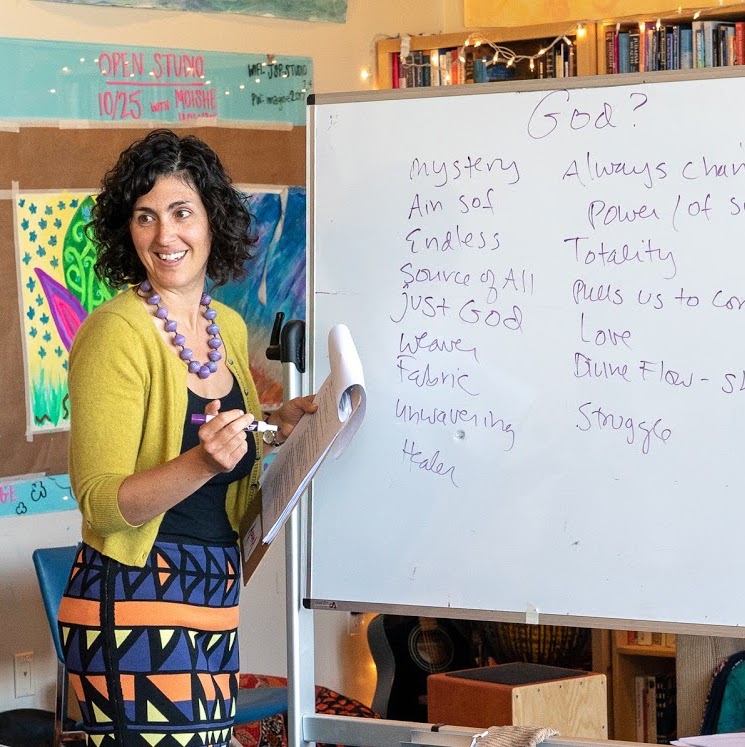 OPEN STUDIO
10/25 with MOISHE
God?
mystery
Ain sof
Endless
Source of All
just God
Weaver
Fabric
unwavering
Healer
Always
Power / of
Totality
Pulls us to
Love
Divine Flow -
Struggle